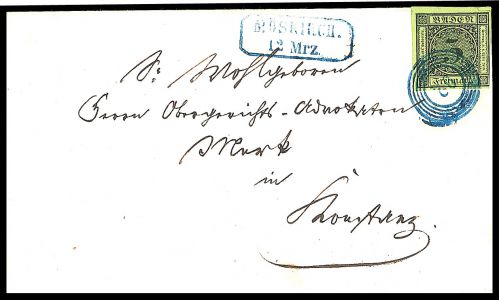 MÖSKIRCH.
12 Mrz.
BADEN
Freimarke
Sr Wohlgeboren
Herrn Obergerichts-Advokaten
Merk
in
Konstanz.